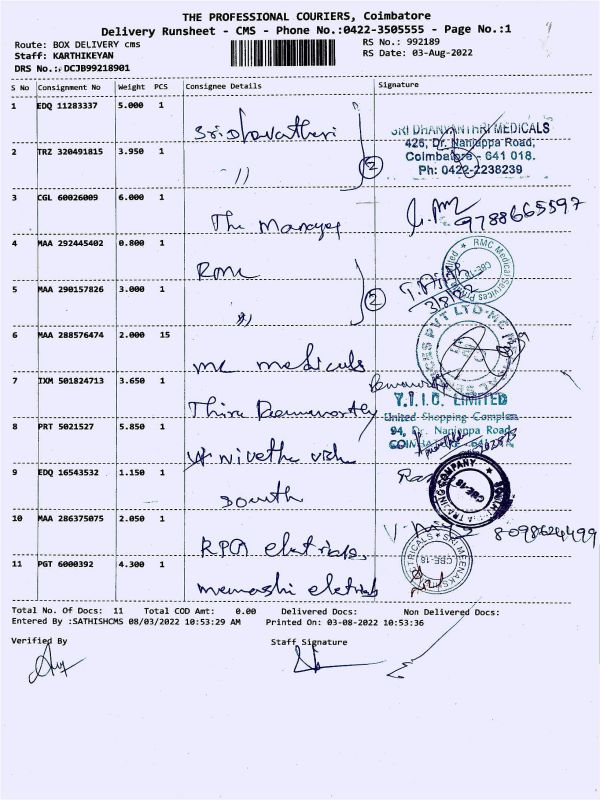 THE PROFESSIONAL COURIERS, Coimbatore
Delivery Runsheet - CMS - Phone No.:0422-3505555 - Page No.:1
Route: BOX DELIVERY cms
RS No.: 992189
Staff: KARTHIKEYAN
RS Date: 03-Aug-2022
DRS No.: DCJB99218901
S No Consignment No Weight PCS Consignee Details Signature
1 EDQ 11283337 5.000 1
SRI DHANVANTHRI MEDICALS
426, Dr. Nanjappa Road,
2 TRZ 320491815 3.950 1 " 2
Coimbatore - 641 018.
Ph: 0422-2238239
3 CGL 60026009 6.000 1 The Manager 9788665597
4 MAA 292445402 0.800 1 RMC
RMC Medical Services
5 MAA 290157826 3.000 1 " 2
3/8/22
6 MAA 288576474 2.000 15 MC medicals
7 IXM 501824713 3.650 1 Thiru
Y.I.I.C. LIMITED
United Shopping Complex
8 PRT 5021527 5.850 1 nivetha
94, Dr. Nanjappa Road
9 EDQ 16543532 1.150 1 South
TRADING COMPANY CBE-18
10 MAA 286375075 2.050 1 RPM 8098624499
11 PGT 6000392 4.300 1
SRI MEENAKSHI ELECTRICALS CBE-18
Total No. Of Docs: 11 Total COD Amt: 0.00 Delivered Docs: Non Delivered Docs:
Entered By :SATHISHCMS 08/03/2022 10:53:29 AM Printed On: 03-08-2022 10:53:36
Verified By Staff Signature